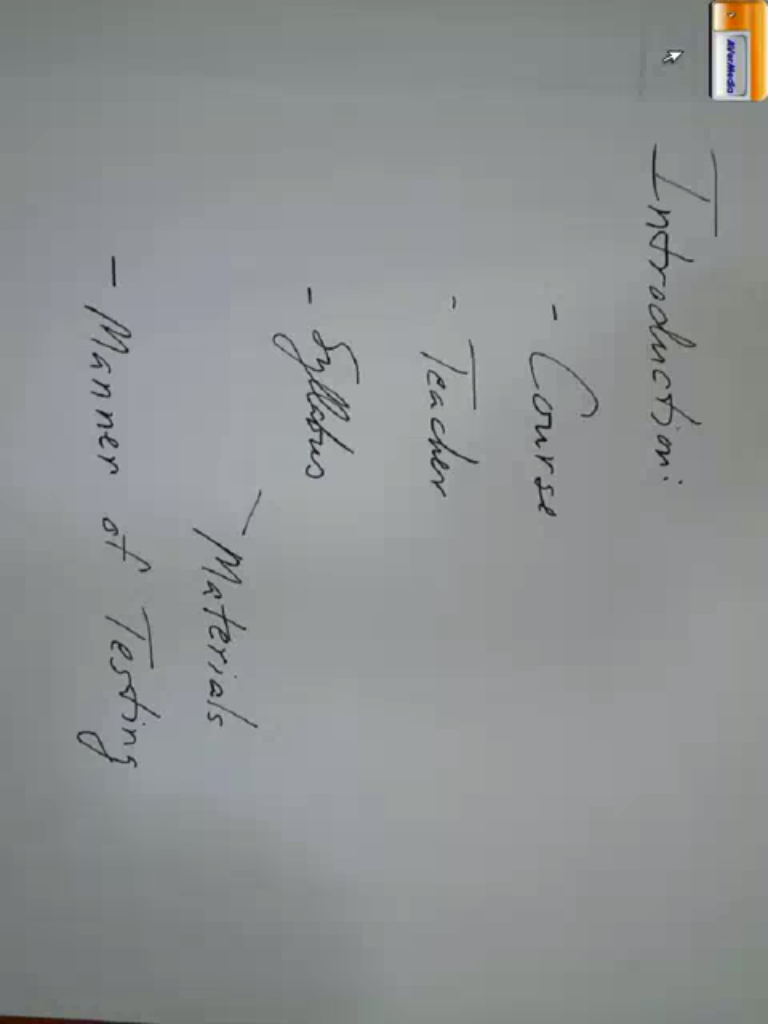 AVerMedia
Introduction:
- Course
- Teacher
- Syllabus
- Materials
- Manner of Testing